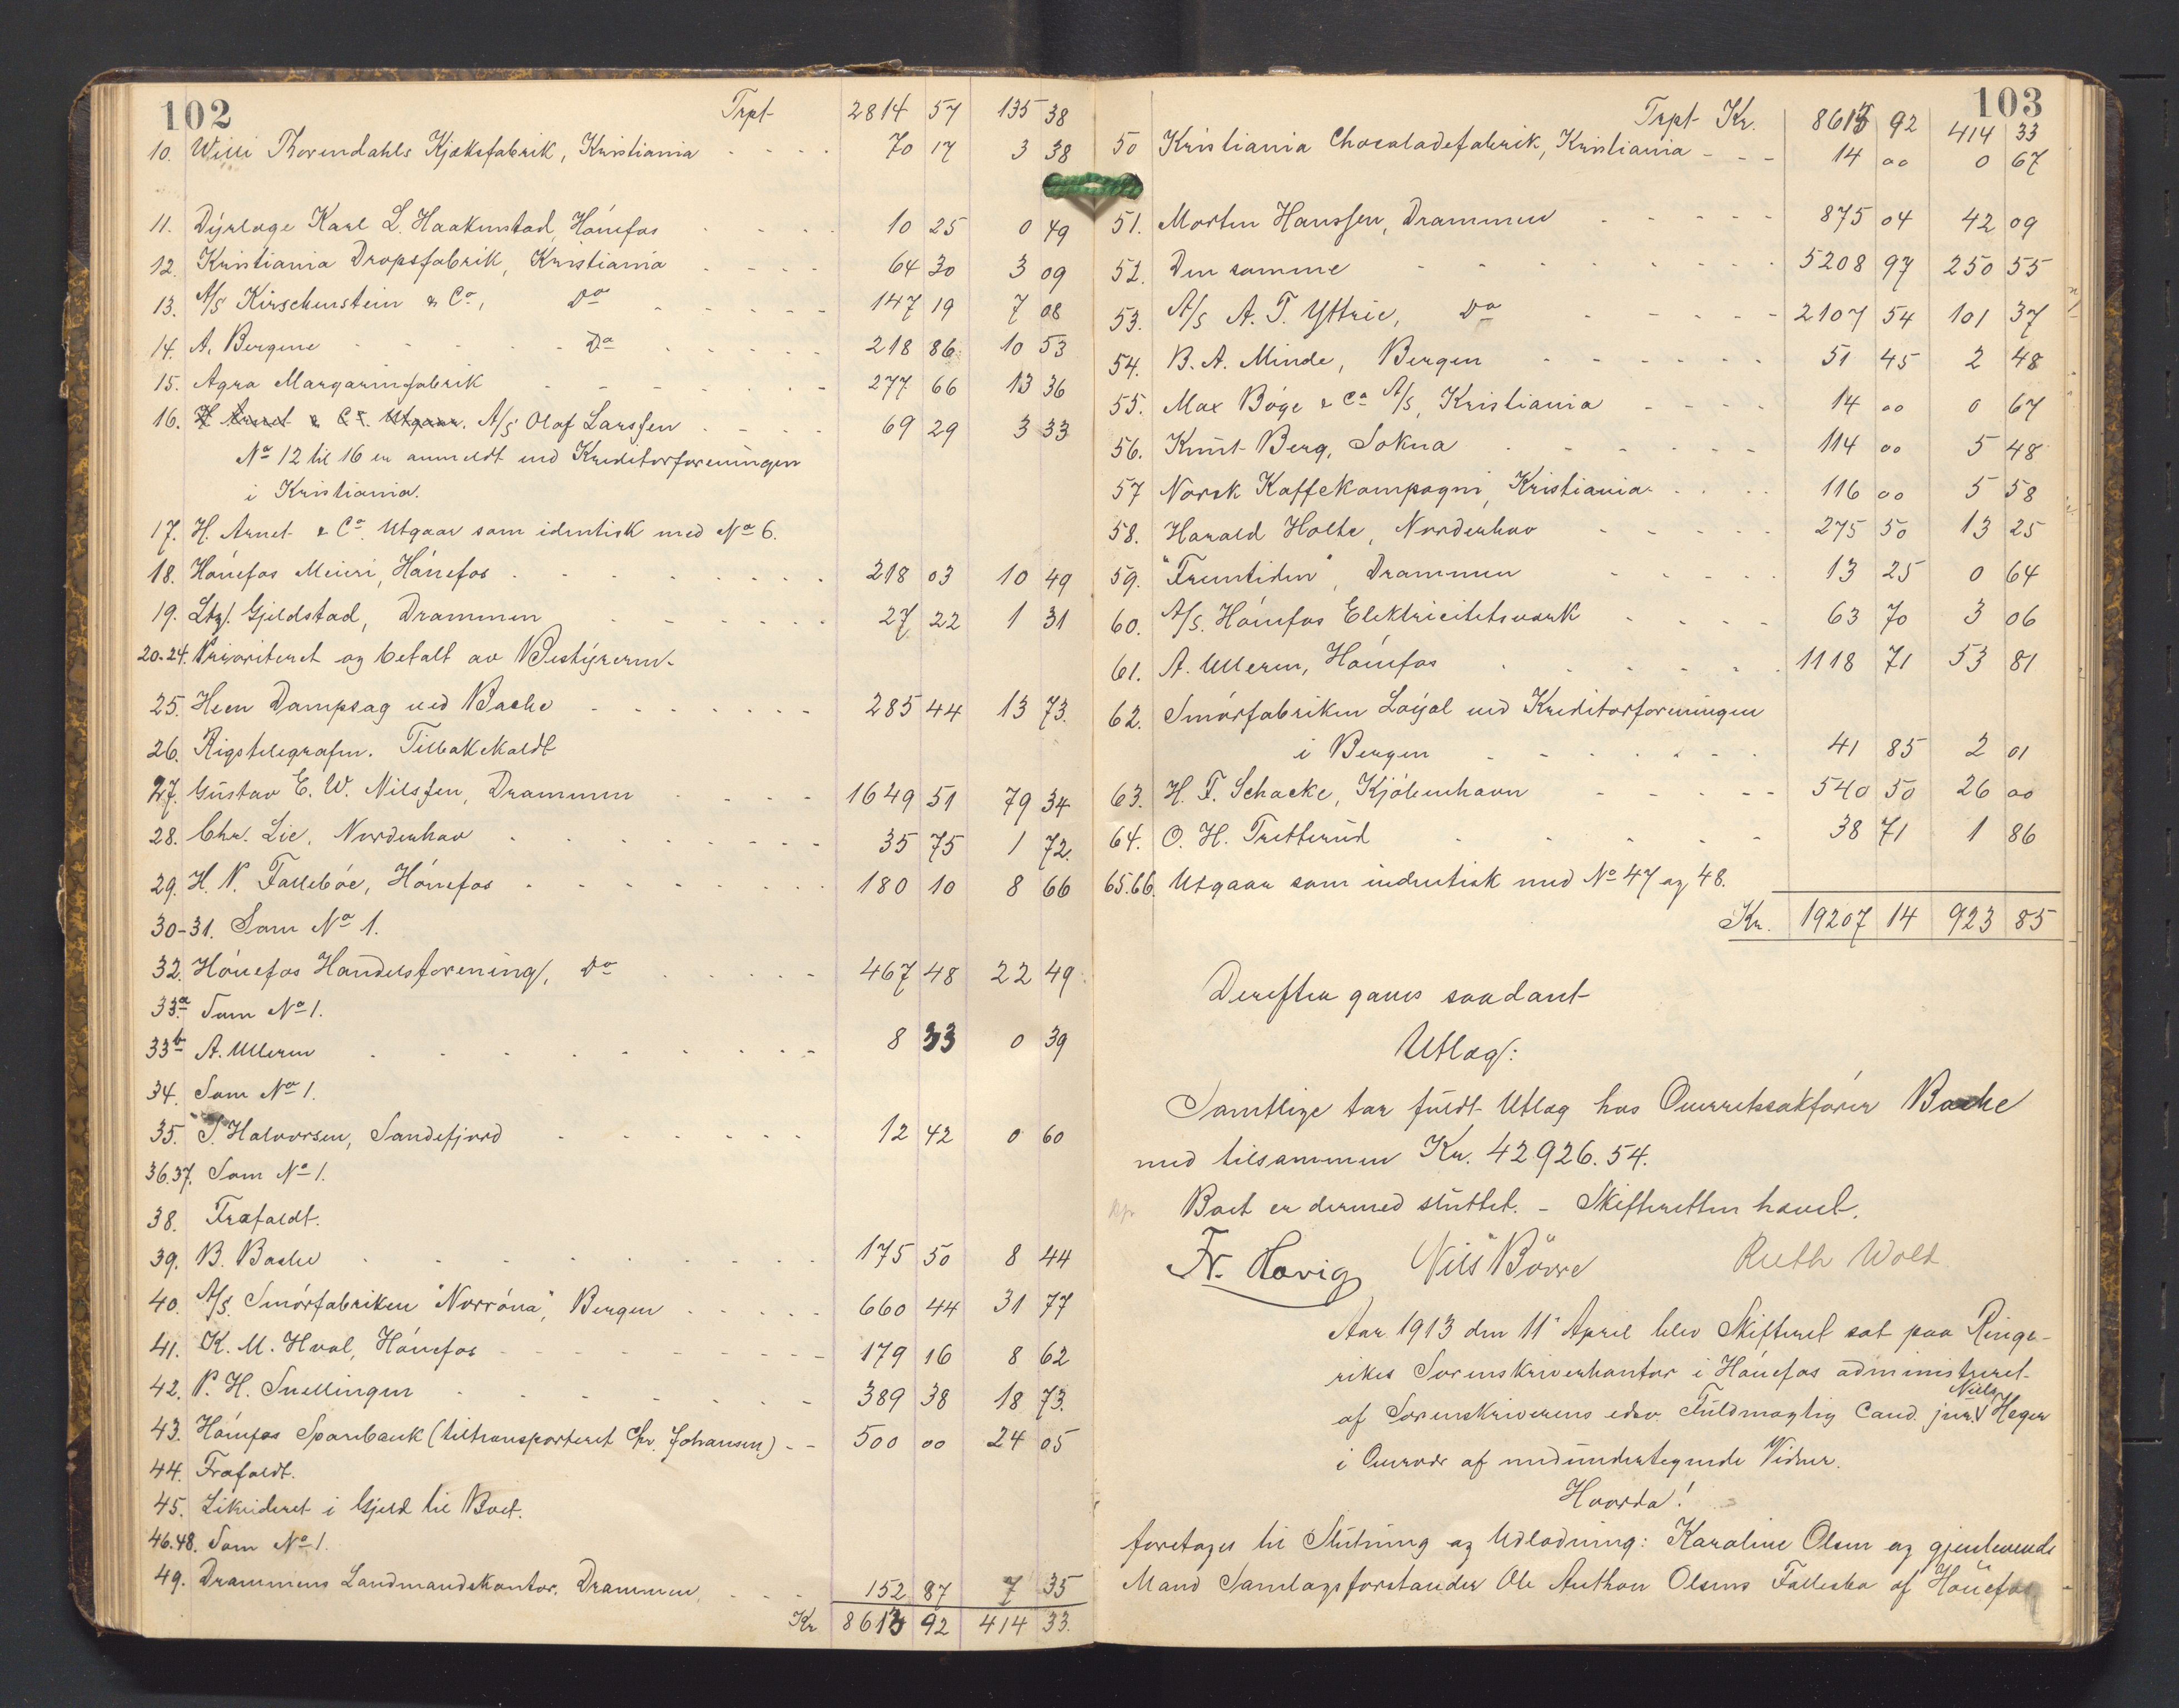 102
Trpt 2814 57 135 38
10. Willi Thorendahls Kjæksfabrik, Kristiania - - - - 70 17 3 38
11. Dýrlæge Karl L. Haakenstad, Hónefos - - - - 10 25 0 49
12. Kristiania Dropsfabrik, Kristiania - - - - 64 30 3 09
13. A/S Kirschenstein & Co, Do - - - - - 147 19 7 08
14. A. Bergene - - - - - Do - - - - - 218 86 10 53
15. Agra Margarinfabrik - - - - - - - 277 66 13 36
16. H Arnet & Co. Utgaar. A/S Olaf Larssen - - - - 69 29 3 33
No 12 til 16 er anmeldt ved Kreditorforeningen
i Kristiania.
17. H. Arnet & Co. Utgaar som identisk med No 6.
18. Hónefos Meieri, Hónefos - - - - - - - - 218 03 10 49
19. Ltz. Gjeldstad, Drammen - - - - - - 27 22 1 31
20-24. Prioriteret og betalt av Bestýreren.
25. Heen Dampsag ved Bache - - - - - - - 285 44 13 73.
26. Rigstelegrafen. Tilbakekaldt
27. Gustav E. W. Nilssen, Drammen - - - - 1649 51 79 34
28. Chr. Lie, Norderhov - - - - - - - - 35 75 1 72.
29. H. N. Fallebóe, Hónefos - - - - - - - - 180 10 8 66
30-31. Som No 1.
32. Hónefos Handelsforening, Do - - - - - 467 48 22 49.
33a Som No 1.
33b A. Ulleren - - - - - - - - - 8 33 0 39
34. Som No 1.
35. S. Halvorsen, Sandefjord - - - - - - - 12 42 0 60
36.37. Som No 1.
38. Frafaldt.
39. B. Bache - - - - - - - - 175 50 8 44
40. A/S. Smórfabriken "Norróna", Bergen - - - - - 660 44 31 77
41. K. M. Hval, Hónefos - - - - - - - - - 179 16 8 62
42. P. H. Snellingen - - - - - - - - 389 38 18 73.
43. Hónefos Sparebank (tiltransporteret Chr. Johansen) - - 500 00 24 05
44. Frafaldt.
45. Likvideret i Gjeld til Boet.
46.48. Som No 1.
49. Drammens Landmandskontor, Drammen - - - 152 87 7 35
Kr 8613 92 414 33.
103
Trpt Kr. 8613 92 414 33
50 Kristiania Chocoladefabrik, Kristiania - - - 14 00 0 67
51. Morten Hanssen, Drammen - - - - - 875 04 42 09
52. Den samme - - - - - - - - 5208 97 250 55
53. A/S A. T. Yttrie, Do - - - - - 2107 54 101 37
54. B. A. Minde, Bergen - - - - - - 51 45 2 48
55. Max Bóge & Co A/S, Kristiania - - - - 14 00 0 67
56. Knut Berg, Sokna - - - - - - 114 00 5 48
57 Norsk Kaffekompagni, Kristiania - - - - 116 00 5 58
58. Harald Holte, Norderhov - - - - - 275 50 13 25
59. "Fremtiden", Drammen - - - - - 13 25 0 64
60. A/S. Hónefos Elektricitetsverk - - - - 63 70 3 06
61. A. Ulleren, Hónefos - - - - - - 1118 71 53 81
62. Smórfabriken Loýal ved Kreditorforeningen
i Bergen - - - - - - - 41 85 2 01
63. H. F. Schacke, Kjóbenhavn - - - - - 540 50 26 00
64. O. H. Tretterud - - - - - 38 71 1 86
65.66. Utgaar som indentisk med No 47 og 48.
Kr. 19207 14 923 85
Derefter gaves saadant
Utlæg:
Samtlige tar fuldt Utlæg hos Overretssakfórer Bache
med tilsammen Kr. 42.926.54.
Boet er dermed sluttet. - Skifteretten hævet.
Fr. Hovig Nils Bövre Ruth Wold
Aar 1913 den 11' April blev Skifteret sat paa Ringe-
rikes Sorenskriverkontor i Hónefos administreret
af Sorenskriverens edsv. Fuldmægtig Cand. jur. Niels Heyer
i Overvær af medundertegnede Vidner.
Hvorda!
foretoges til Slutning og Udlodning: Karoline Olsen og gjenlevende
Mand Samlagsforstander Ole Anthon Olsens Fællesbo af Hönefos